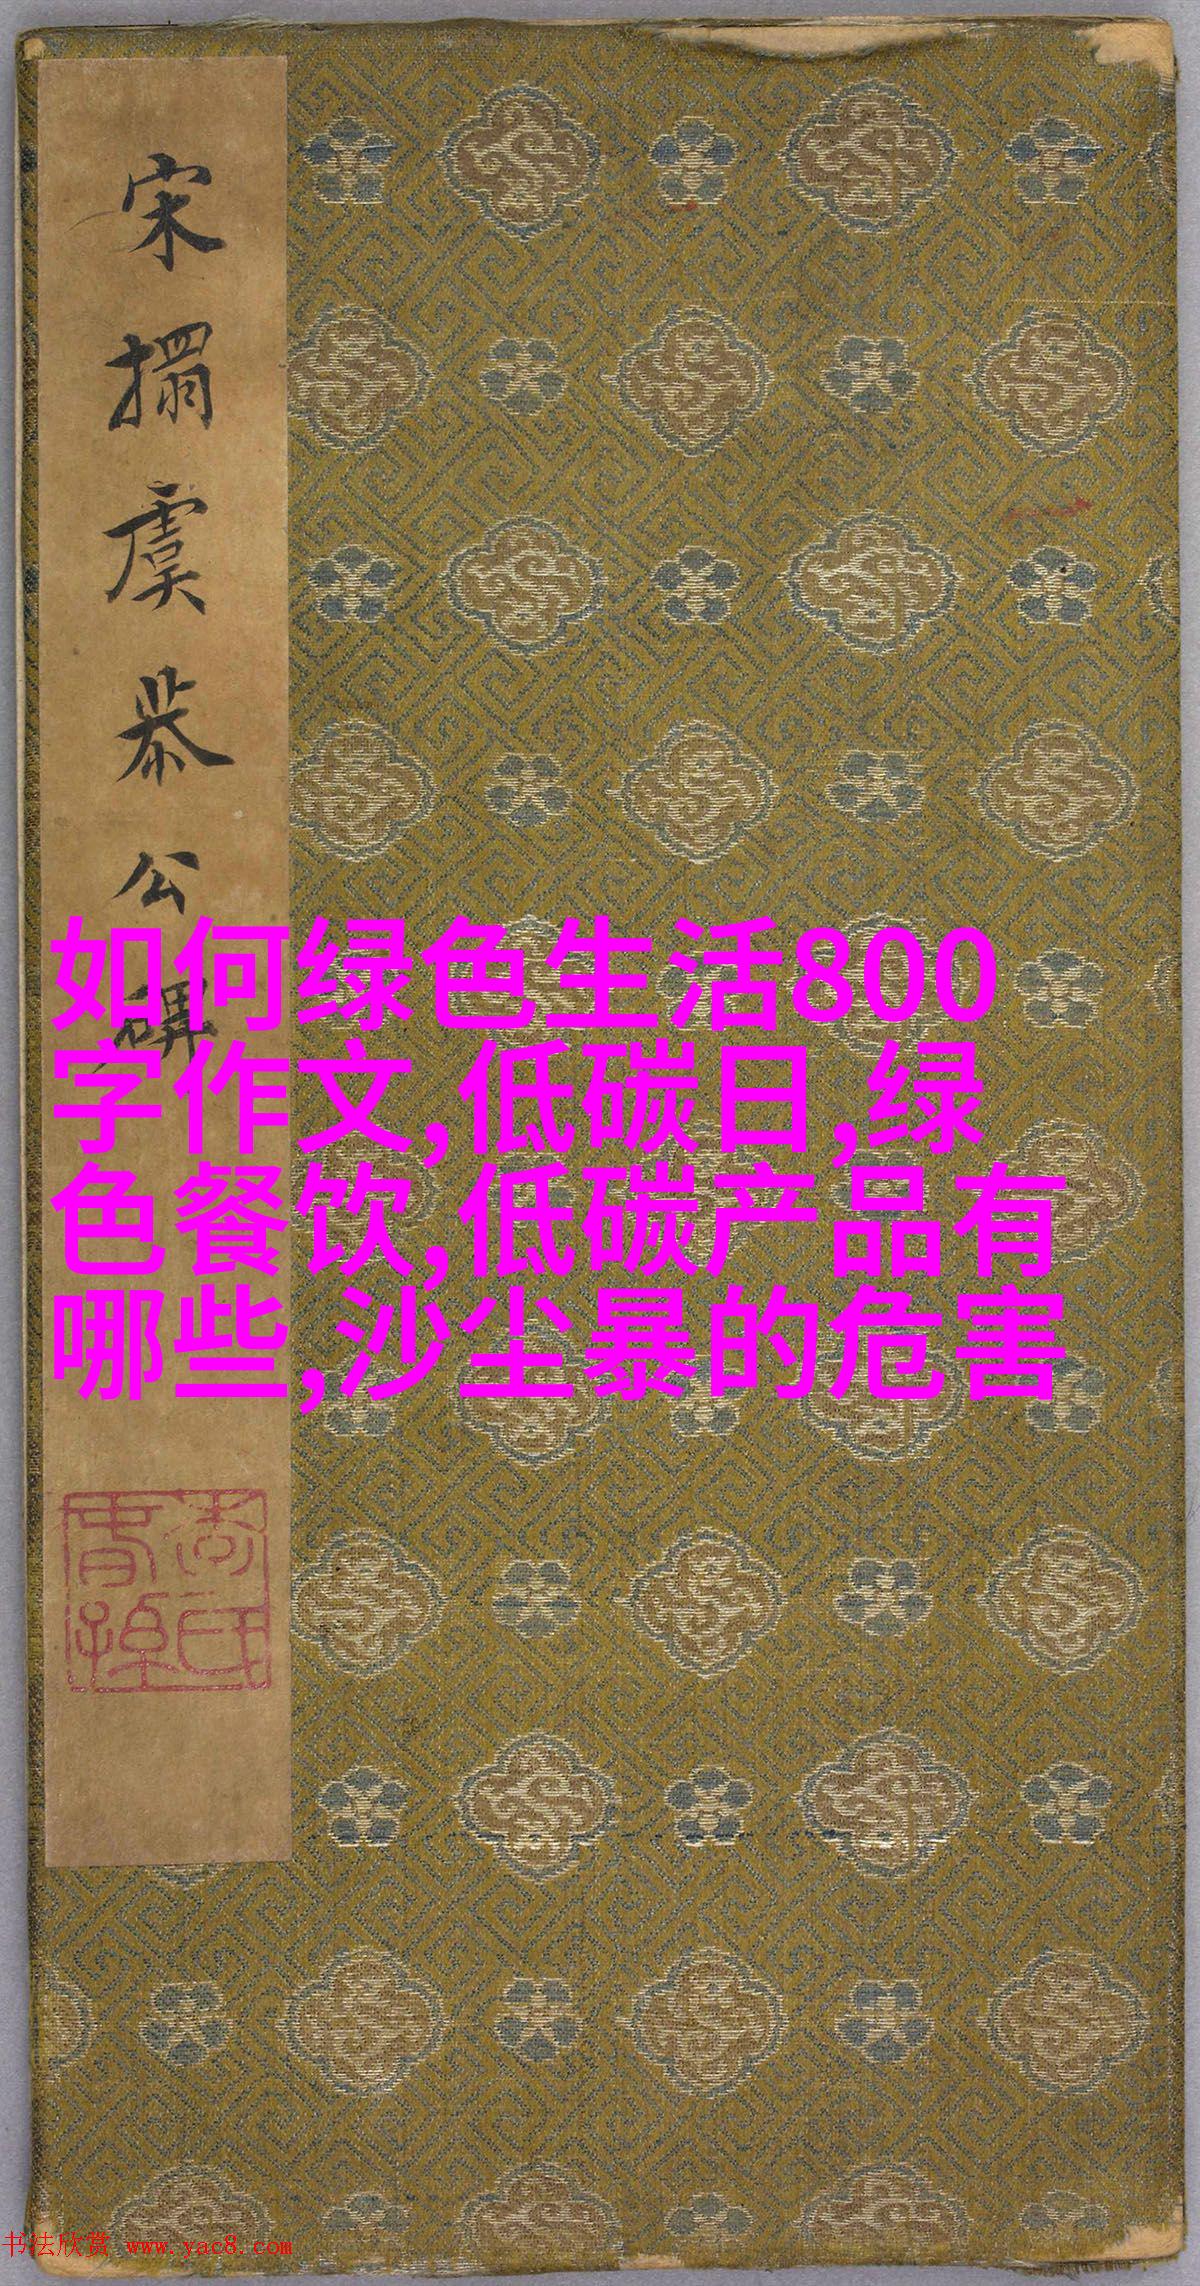 宋搨虞恭公碑
如何绿色生活800
字作文,低碳日,绿
色餐饮,低碳产品有
哪些,沙尘暴的危害
书法欣赏 www.yac8.com